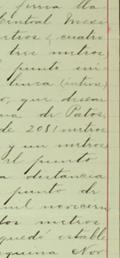 forma la
Central Mexi
etros y cuatro
tres metros
punto ini
linea (intiva)
o, que desea
na de Patos,
de 2081 metros
y un metros
el punto
a distancia
punto de
mil novecien
tos metros
quedó estable
esquina Nor